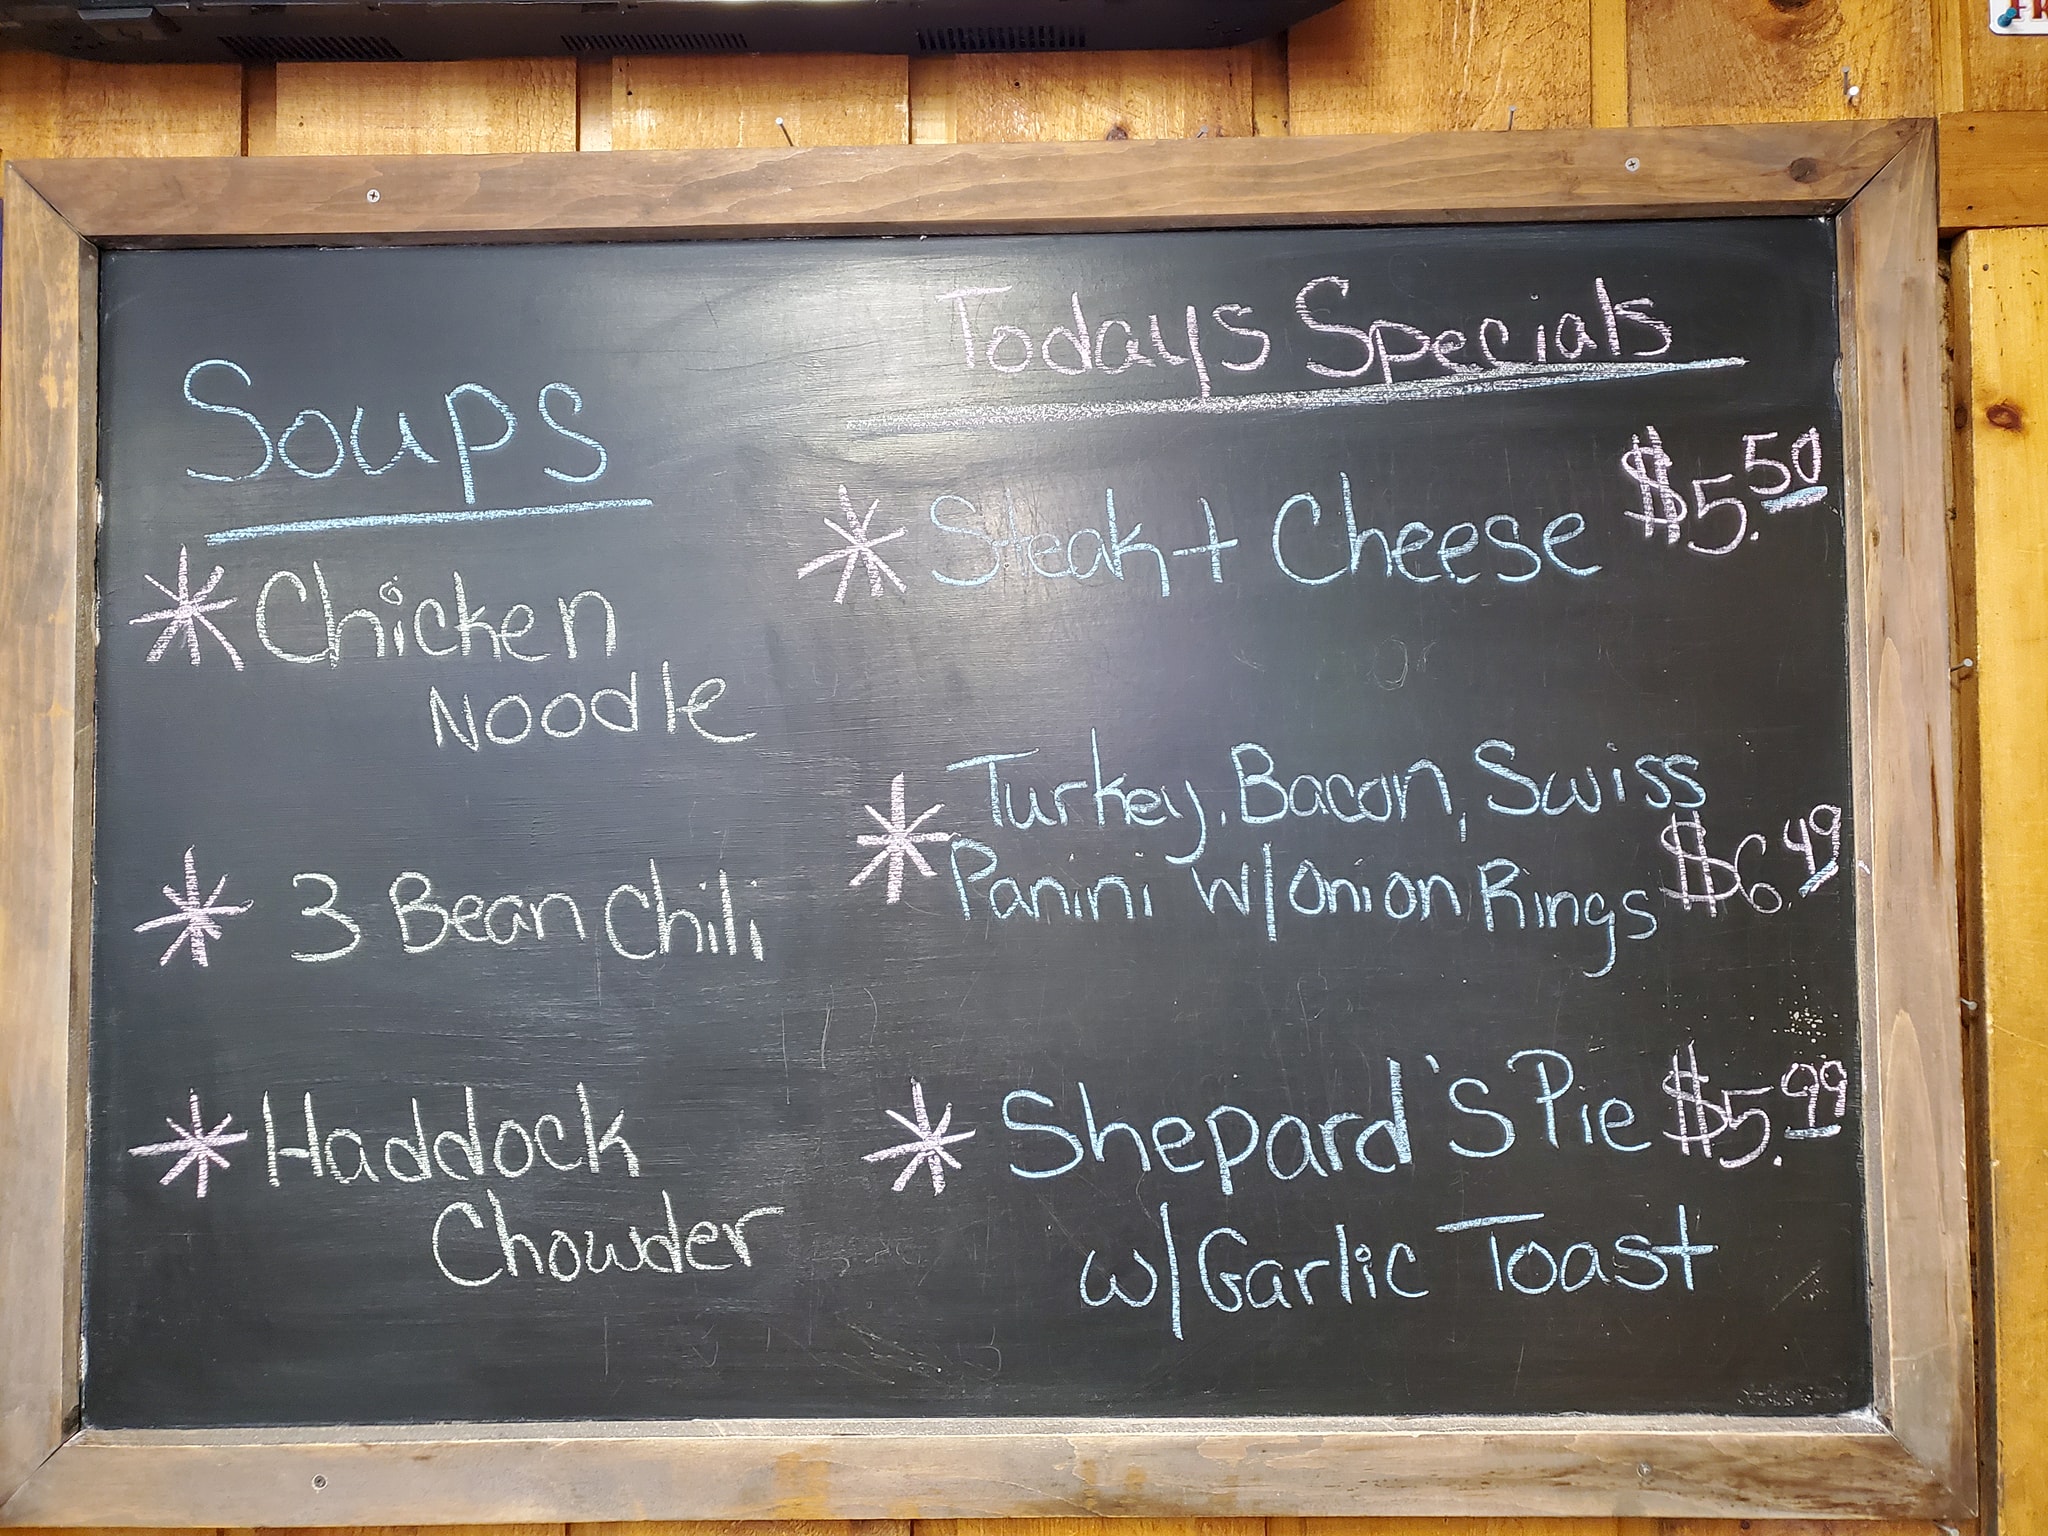 Soups
* Chicken
Noodle
* 3 Bean Chili
* Haddock
Chowder
Todays Specials
* Steak + Cheese $5.50
* Turkey, Bacon, Swiss
Panini w/Onion Rings $6.49
* Shepard's Pie $5.99
w/Garlic Toast